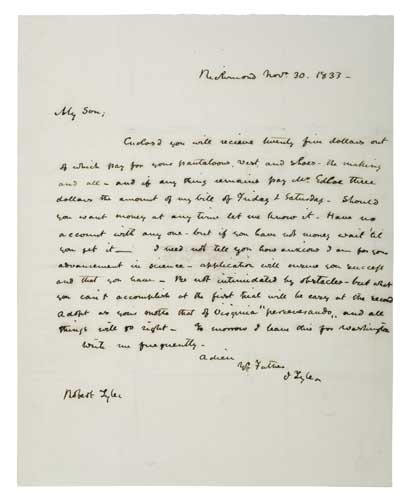 Richmond Nov. 30. 1833 -
My Son;
Enclosd you will recieve twenty five dollars out
of which pay for your pantaloons, vest, and shoes - the making
and all - and if any thing remains pay Mr. Edloe three
dollars the amount of my bill of Friday & Saturday - Should
you want money at any time let me know it - Have no
account with any one - but if you have not money wait 'til
you get it - I need not tell you how anxious I am for your
advancement in science - application will ensure you success
and that you have - Be not intimidated by obstacles - but what
you can't accomplish at the first trial will be easy at the second
Adopt as your motto that of Virginia "perseverando", and all
things will go right - To morrow I leave this for Washington
Write me frequently -
Adieu
Yr Father
J Tyler
Robert Tyler